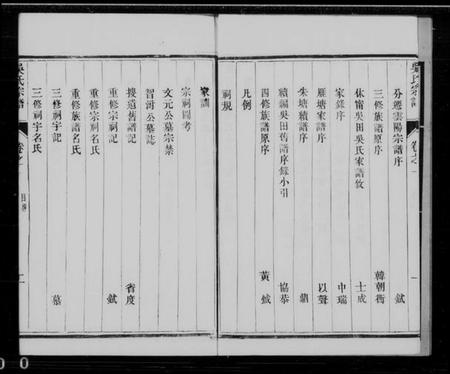 吳氏宗譜 卷之一
分遷雲陽宗譜序 鉞
三修族譜原序 韓朝衡
休甯吳田吳氏家譜攷 士成
家錄序 中瑞
雁塘家譜序 以聲
朱塘續譜序 鼐
續編吳田舊譜序錄小引 協恭
四修族譜原序 黃鉞
凡例
祠規
家訓
宗祠圖考
文元公墓宗禁
智谞公墓誌
接遠舊譜記 省度
重修宗祠記 鉞
重修宗祠名氏
重修族譜名氏
三修祠宇記 蓦
三修祠宇名氏
吳氏宗譜 卷之一 目錄
0 0